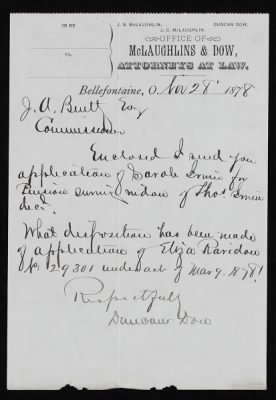 IN RE
VS.
J. B. McLAUGHLIN. DUNCAN DOW.
J. D. McLAUGHLIN.
OFFICE OF
McLAUGHLINS & DOW,
ATTORNEYS AT LAW.
Bellefontaine, O. Nov 28" 1878
J. A. Bently Esq
Commissioner
Enclosed I send you
application of Sarah Irwin for
Pension surviving widow of Thos Irwin
decd.
What disposition has been made
of application of Eliza Davidson
No. 29301 under act of Mar 9. 1878?
Respectfully
Duncan Dow